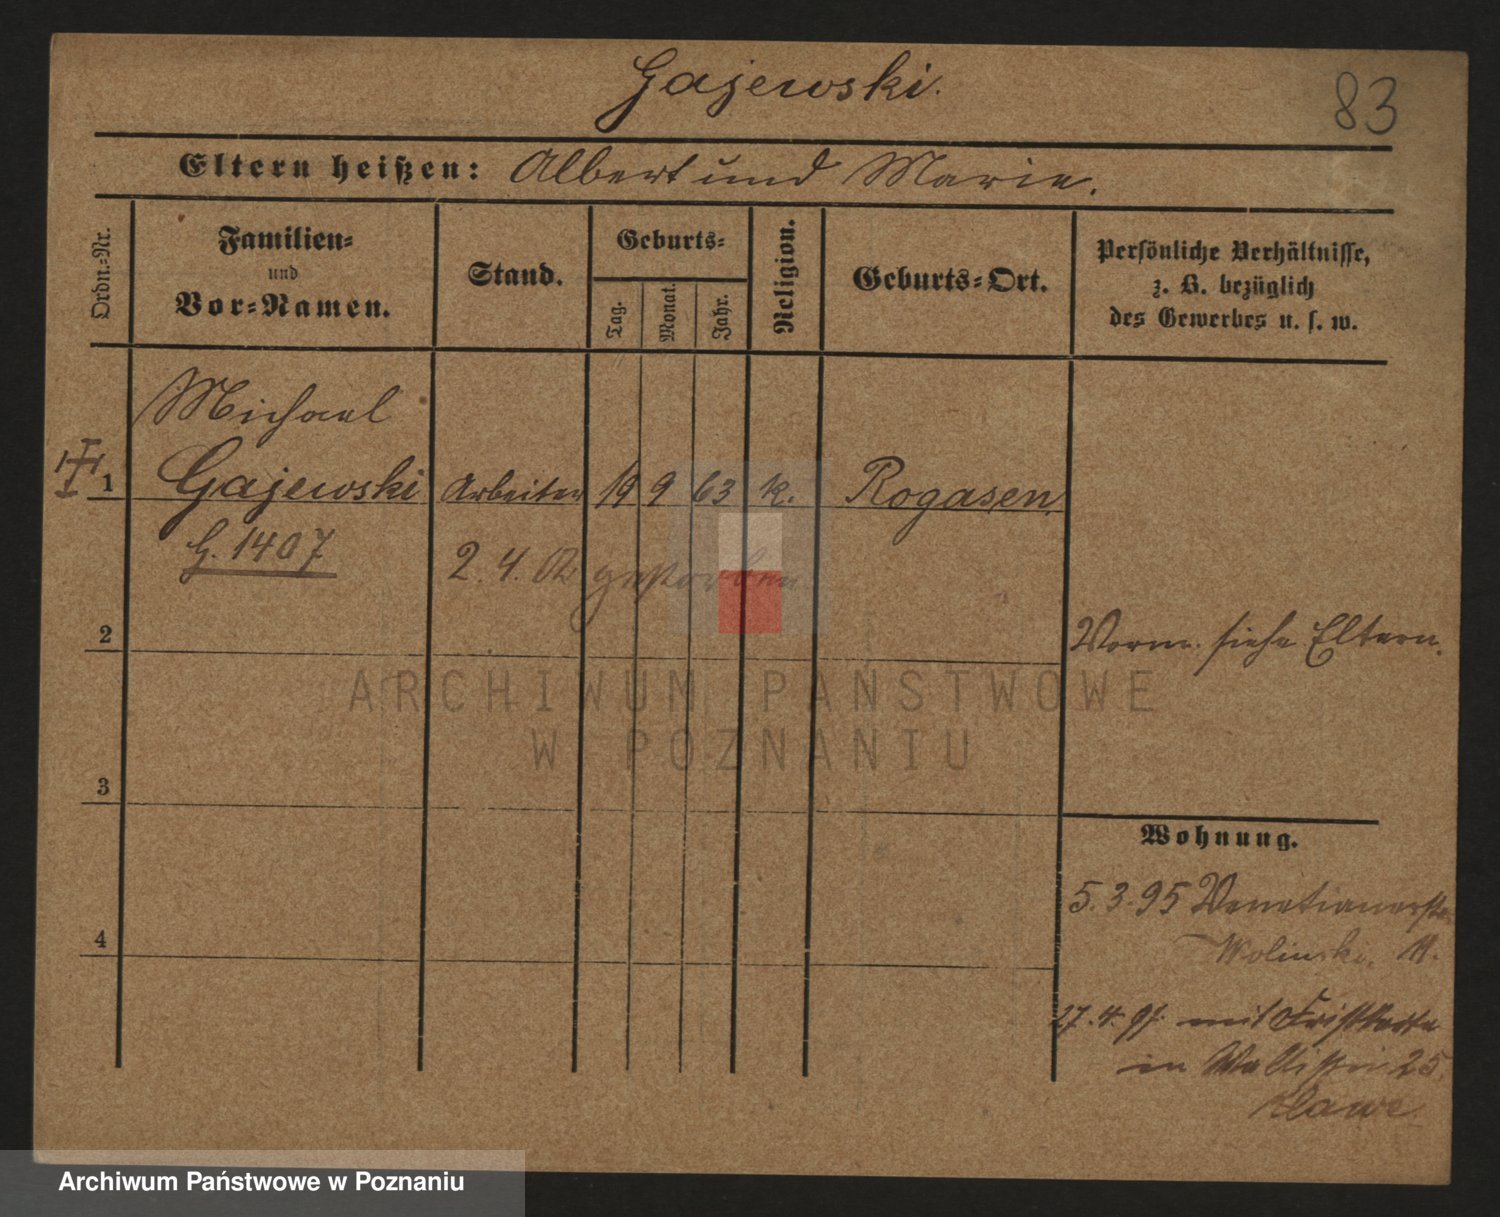 Gajewski.
83
Eltern heißen: Albert und Marie.
Ordn.-Nr.
Familien-
und
Vor-Namen.
Stand.
Geburts-
Tag.
Monat.
Jahr.
Religion.
Geburts-Ort.
Persönliche Verhältnisse,
z. B. bezüglich
des Gewerbes u. s. w.
Michael
1 Gajewski Arbeiter 19 9 63 k. Rogasen.
G. 1407
2. 4. 02 gestorben
2
Vorm. siehe Eltern.
3
Wohnung.
5. 3. 95 Venetianerstr.
4
Wolinski.
27. 4. 97. mit
in Wallischei 25.
ARCHIWUM PAŃSTWOWE
W POZNANIU
Archiwum Państwowe w Poznaniu